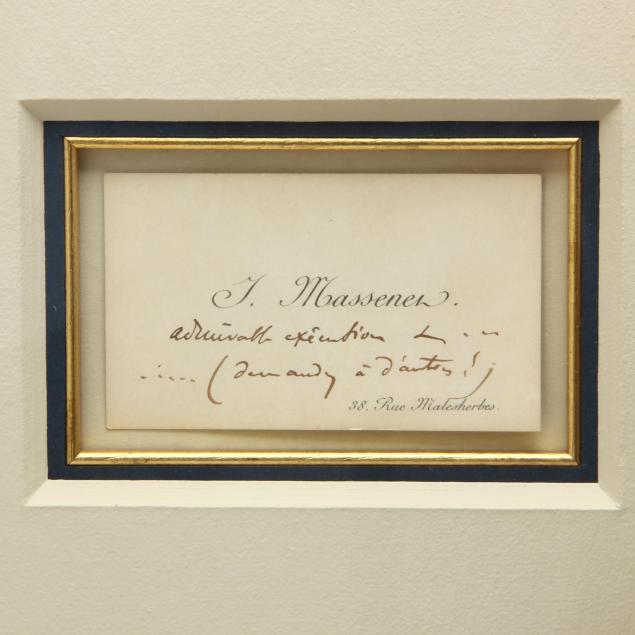 J. Massenet.
admirable exécution et ...
..... (demandez à d'autres!)
38, Rue Malesherbes.